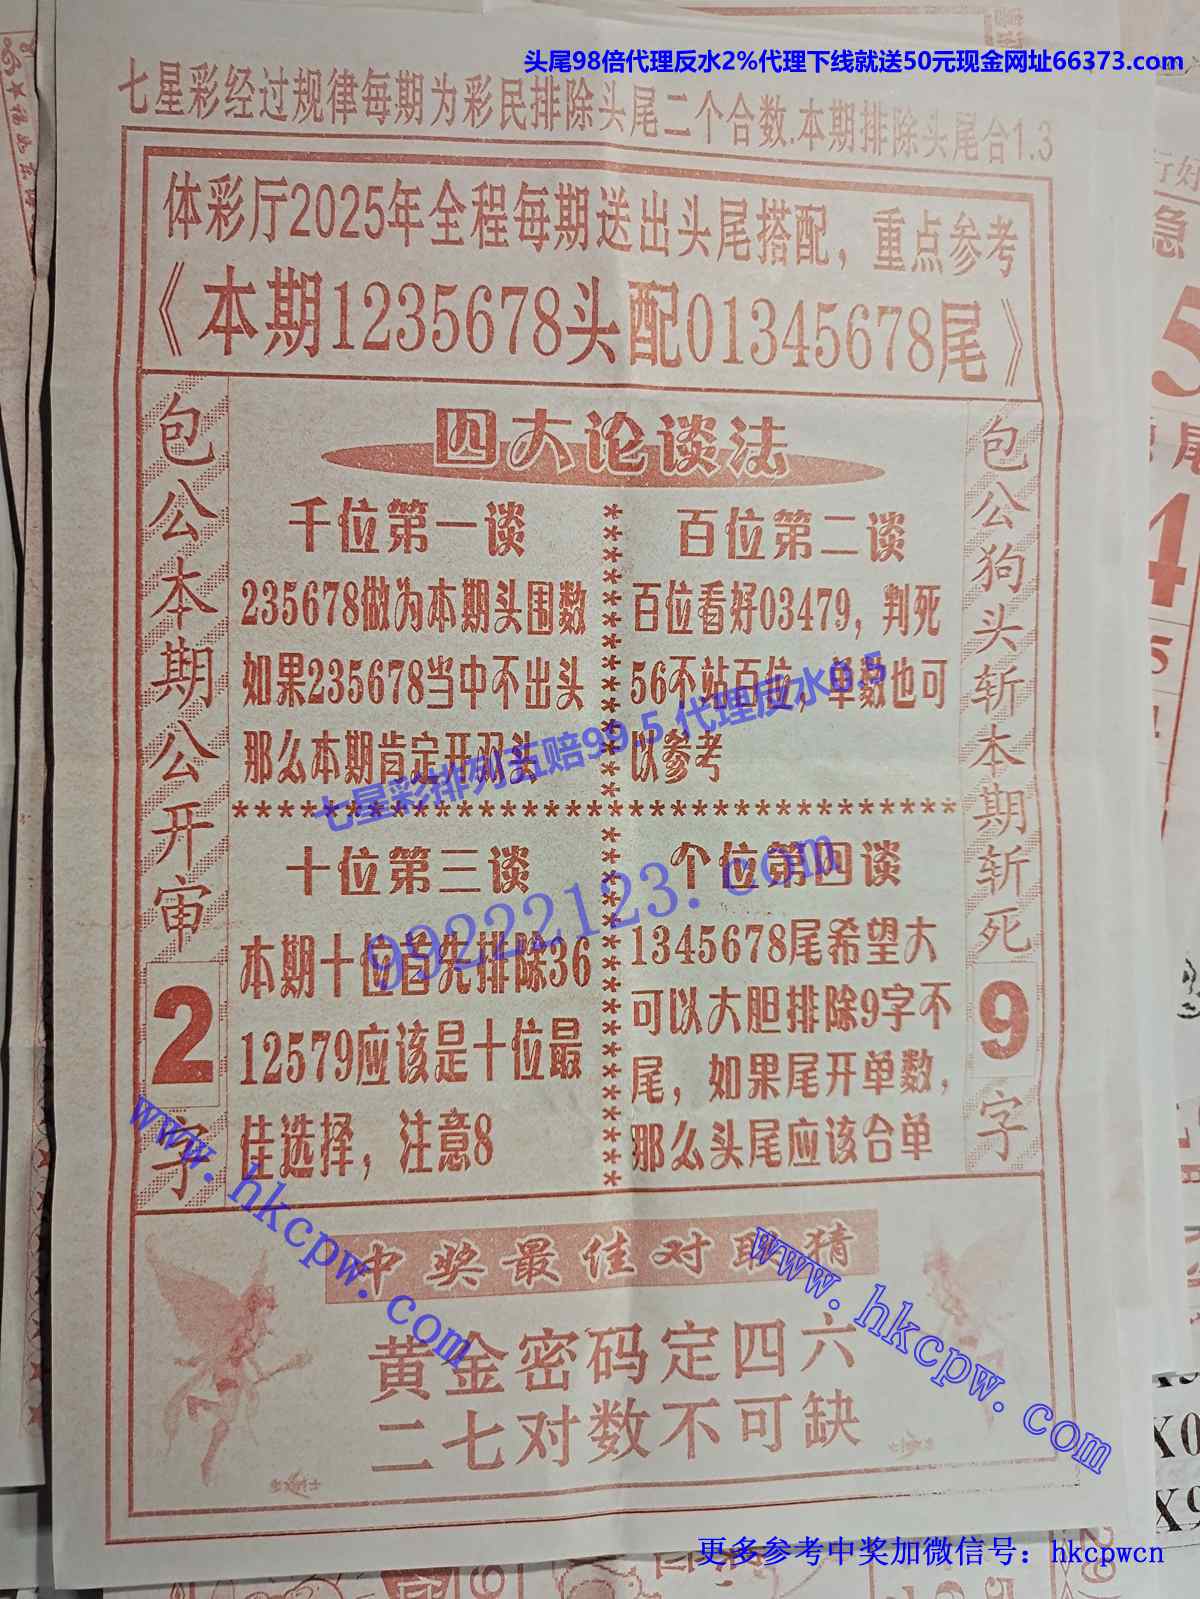 头尾98倍代理反水2%代理下线就送50元现金网址66373.com
七星彩经过规律每期为彩民排除头尾二个合数.本期排除头尾合1.3
体彩厅2025年全程每期送出头尾搭配，重点参考
《本期1235678头配01345678尾》
包公本期公开审2字
四大论谈法
千位第一谈
235678做为本期头围数
如果235678当中不出头
那么本期肯定开双头
百位第二谈
百位看好03479，判死
56不站百位，单数也可
以参考
七星彩排列五赔99.5 代理反水0.5
99222123.com
十位第三谈
本期十位首先排除36
12579应该是十位最
佳选择，注意8
个位第四谈
1345678尾希望大
可以大胆排除9字不
尾，如果尾开单数，
那么头尾应该合单
包公狗头斩本期斩死9字
www.hkcpw.com
www.hkcpw.com
中奖最佳对联猜
黄金密码定四六
二七对数不可缺
更多参考中奖加微信号：hkcpwcn